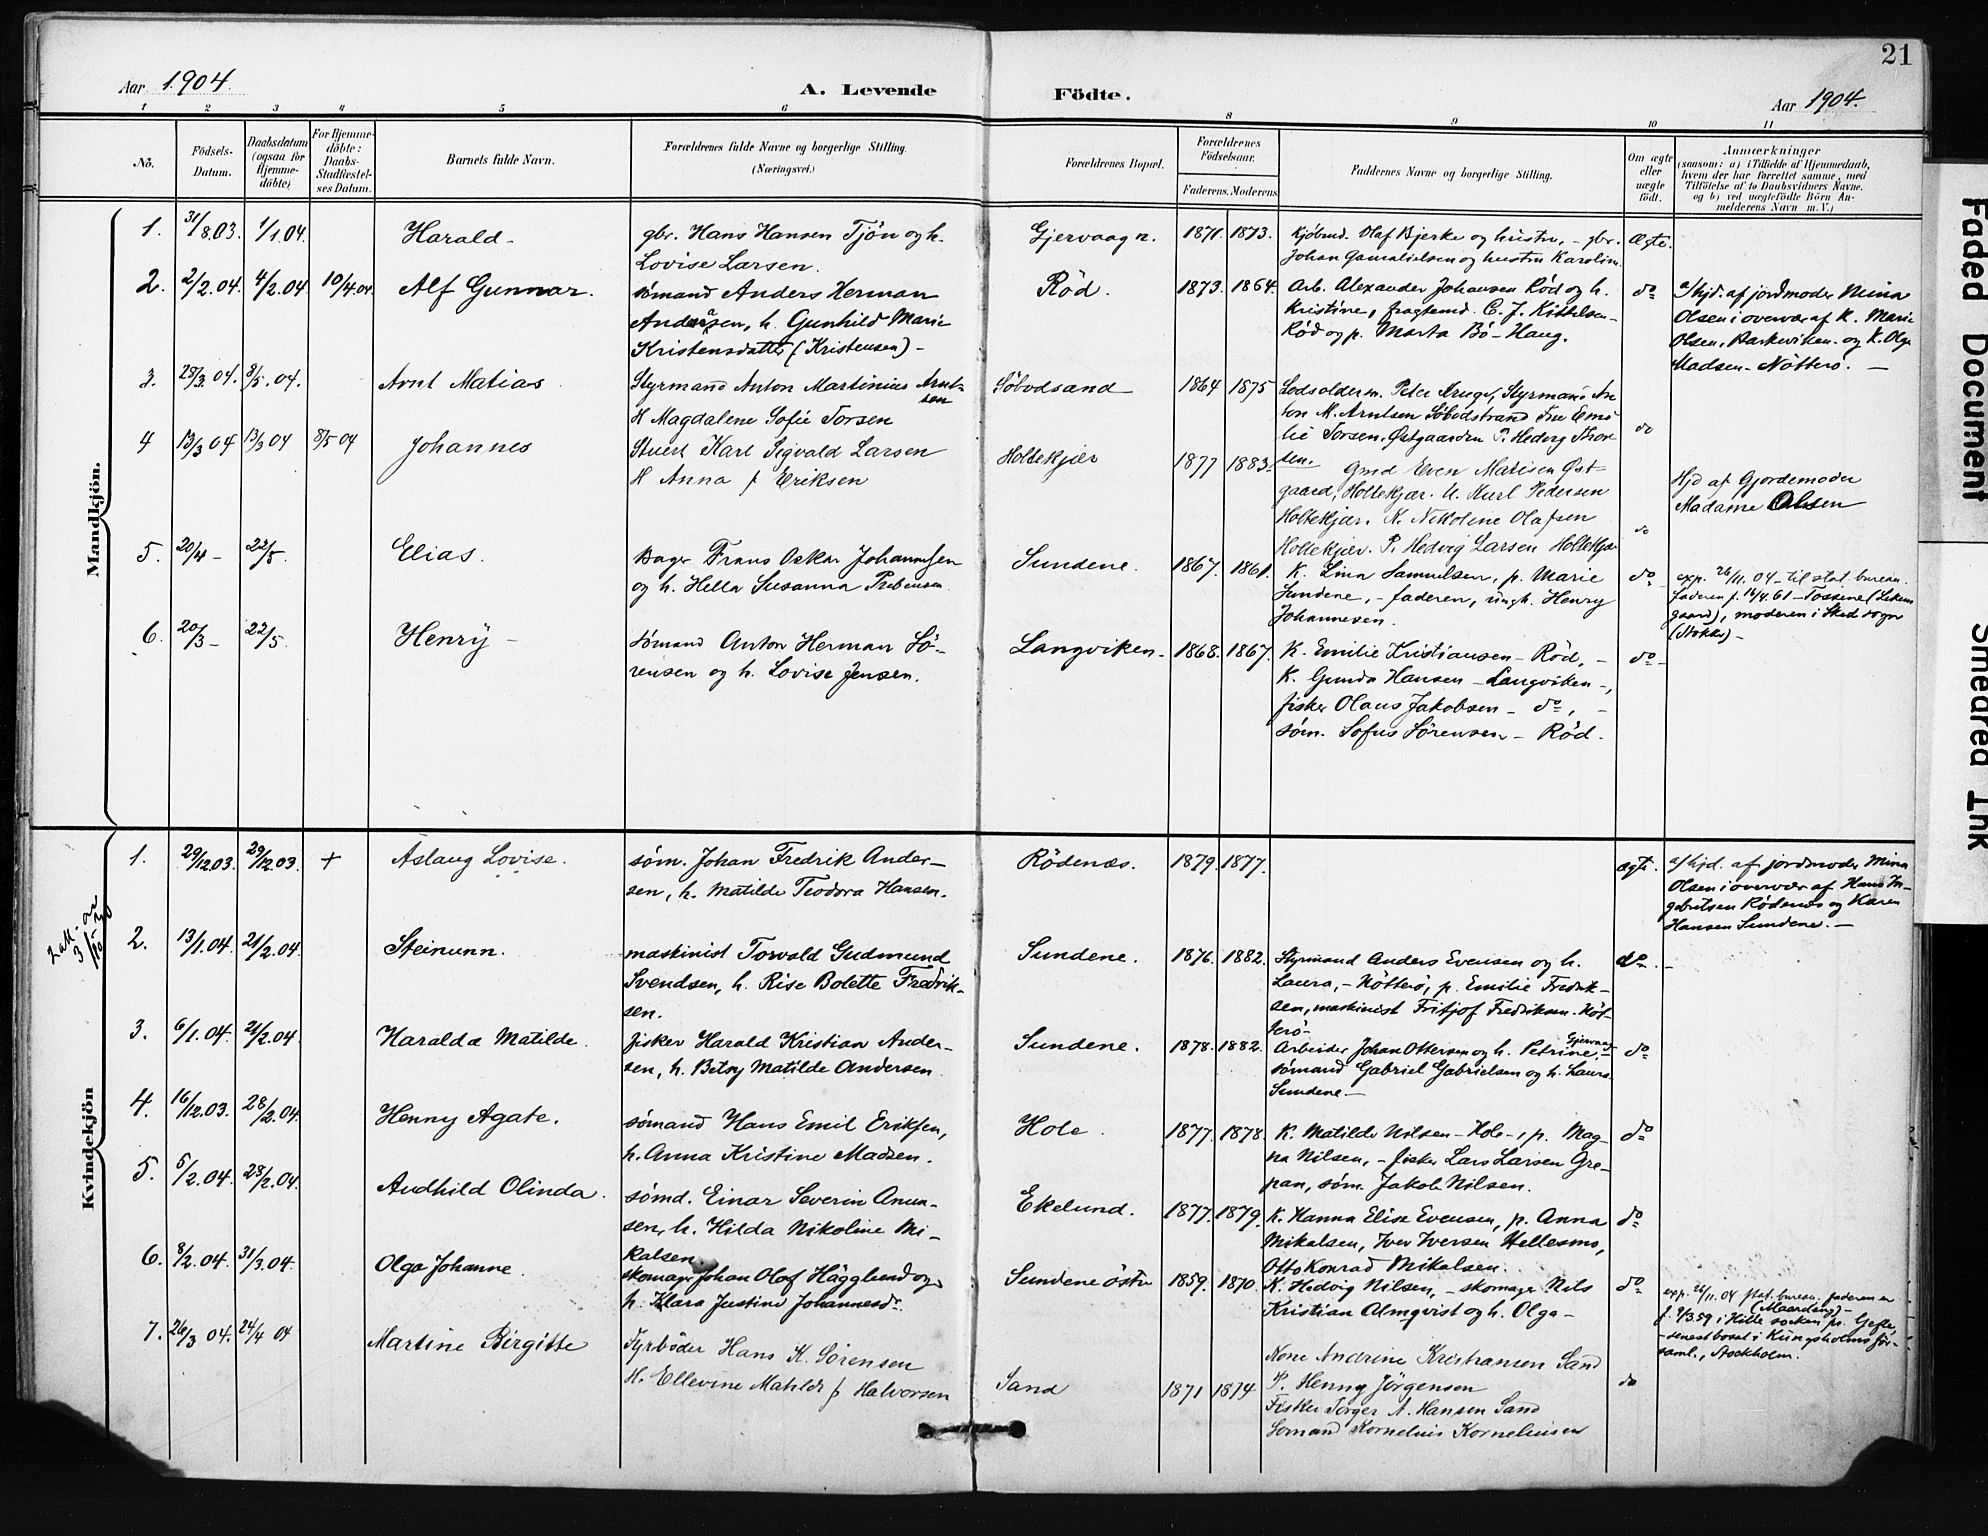 21
Aar 1904.
A. Levende
Födte.
Aar 1904.
1 2 3 4 5 6 8 9 10 11
No.
Födsels-
Datum.
Daabsdatum
(ogsaa for
Hjemme-
döbte)
For Hjemme-
döbte:
Daabs-
Stadfæstel-
ses Datum.
Barnets fulde Navn.
Forældrenes fulde Navne og borgerlige Stilling.
(Næringsvei.)
Forældrenes Bopæl.
Forældrenes
Födselsaar.
Faderens. Moderens.
Faddernes Navne og borgerlige Stilling.
Om ægte
eller
uægte
födt.
Anmærkninger
(saasom: a) i Tilfælde af Hjemmedaab,
hvem der har forrettet samme, med
Tilföielse af to Daabsvidners Navne,
og b) ved uægtefödte Börn An-
melderens Navn m. V.)
Mandkjön.
1. 31/8.03. 1/1.04. Harald.
gbr. Hans Hansen Tjön og h.
Lovise Larsen.
Gjervaag n. 1871. 1873.
Kjøbmd. Olaf Bjerke og hustru, - gbr.
Johan Gamalielsen og hustru Karolin.
Ægte.
2. 2/2.04. 4/2.04 10/4.04. Alf Gunnar.
sømand Anders Herman
Andersen, h. Gunhild Marie
Kristensdatter (Kristensen) -
Röd. 1873. 1864.
Arb. Alexander Johansen Rød og h.
Kristine, fragtemd. C. J. Kittilsen-
Rød og p. Marta Bö-Haug.
do
a/ hjd. af jordmoder Mina
Olsen i overvær af K. Marie
Olsen, Barkeviken og K. Olga
Madsen - Nötterö. -
3. 28/3.04. 8/5.04. Arnt Matias
Styrmand Anton Martinius Arnt-
sen
H Magdalene Sofie Torsen
Söbodsand 1864 1875
Lodsolderm. Peter Kruge, Styrmand An
ton M. Arntsen Söbodstrand Fru Emi
lie Torsen, Østgaarden P. Hedvig Thor
sen.
do
4 13/3 04 13/3 04 8/5 04 Johannes
Stuert Karl Sigvald Larsen
H Anna f Eriksen
Holtekjær 1877 1883.
Gmd Even Matisen Øst-
gaard, Holtekjær. U. Kurl Pedersen
Holtekjær. K. Nikoline Olafsen
Holtekjær. P. Hedvig Larsen Holtekjær
do
Hjd af Gjordemoder
Madame Olsen
5. 20/4 - 22/5. Elias.
Bager Frans Oskar Johannesen
og h. Hella Susanna Prebensen
Sundene. 1867. 1861.
K. Lina Samuelsen, p. Marie
Sundene, - faderen, ungk. Henry
Johannesen.
do
exp. 26/11.04 - til stat. bureau.
faderen f. 16/4.61 - Tossene (Leken
gaard), moderen i Sked sogn
(Nokke) -
6. 20/3 - 22/5. Henry -
sömand Anton Herman Sö-
rensen og h. Lovise Jensen.
Langviken. 1868. 1867.
K. Emilie Kristiansen - Röd, -
K. Gunda Hansen - Langviken -,
fisker Olaus Jakobsen - do, -
søm. Sofus Sörensen - Röd.
do
Kvindekjön
1. 29/12 03. 29/12.03. + Aslaug Lovise.
søm. Johan Fredrik Ander-
sen, h. Matilde Teodora Hansen.
Rödenæs. 1879. 1877.
ægte.
a/ hjd. af jordmoder Mina
Olsen i overvær af Hans In-
gebretsen Rödenæs og Karen
Hansen Sundene. -
2. 13/1.04. 21/2.04. Steinunn.
maskinist Torvald Gudmund
Svendsen, h. Rise Bolette Fredrik-
sen.
Sundene. 1876. 1882.
Styrmand Anders Evensen og h.
Laura, - Nötterö, p. Emilie Fredrik-
sen, maskinist Fritjof Fredriksen - Nöt-
terö -
do -
3. 6/1.04. 21/2.04. Haralda Matilde.
fisker Harald Kristian Ander-
sen, h. Betsy Matilde Andersen
Sundene. 1878. 1882.
Gjervaag
Arbeider Johan Ottersen og h. Petrine, -
sömand Gabriel Gabrielsen og h. Laura
Sundene -
do
4. 16/12.03. 28/2.04. Henny Agate.
sömand Hans Emil Eriksen,
h. Anna Kristine Madsen.
Hole. 1877. 1878.
K. Matilde Nilsen - Hole -, p. Mag-
na Nilsen, - fisker Lars Larsen Gre-
pan, søm. Jakob Nilsen.
do
5. 5/2.04. 28/2.04. Audhild Olinda.
sömd. Einar Severin Anun-
sen, h. Hilda Nikoline Mi-
kalsen
Ekelund. 1877. 1879.
K. Hanna Elise Evensen, p. Anna
Mikalsen, Iver Iversen Hellesmo,
Otto Konrad Mikalsen.
do
6. 8/2.04. 31/3.04. Olga Johanne.
skomager Johan Olaf Hägglund og
h. Klara Justine Johannesdr.
Sundene östre 1859. 1870.
K. Hedvig Nilsen, - skomager Nils
Kristian Almqvist og h. Olga -
do
exp. 26/11.04 stat. bureau. faderen er
(Maardäng) -
f. 9/3.59 i Hille socken pr. Gefle,
- senest bosat i Kungsholms för-
saml., Stockholm.
7. 26/3 04. 24/4 04 Martine Birgitte
Fyrböder Hans K. Sörensen
H. Ellevine Matilde f Halvorsen
Sand 1871 1874
Kone Andrine Kristiansen Sand
P. Henny Jörgensen
Fisker Torger A. Hansen Sand
Sömand Kornelius Korneliusen
do
Faded Document
Smeared Ink